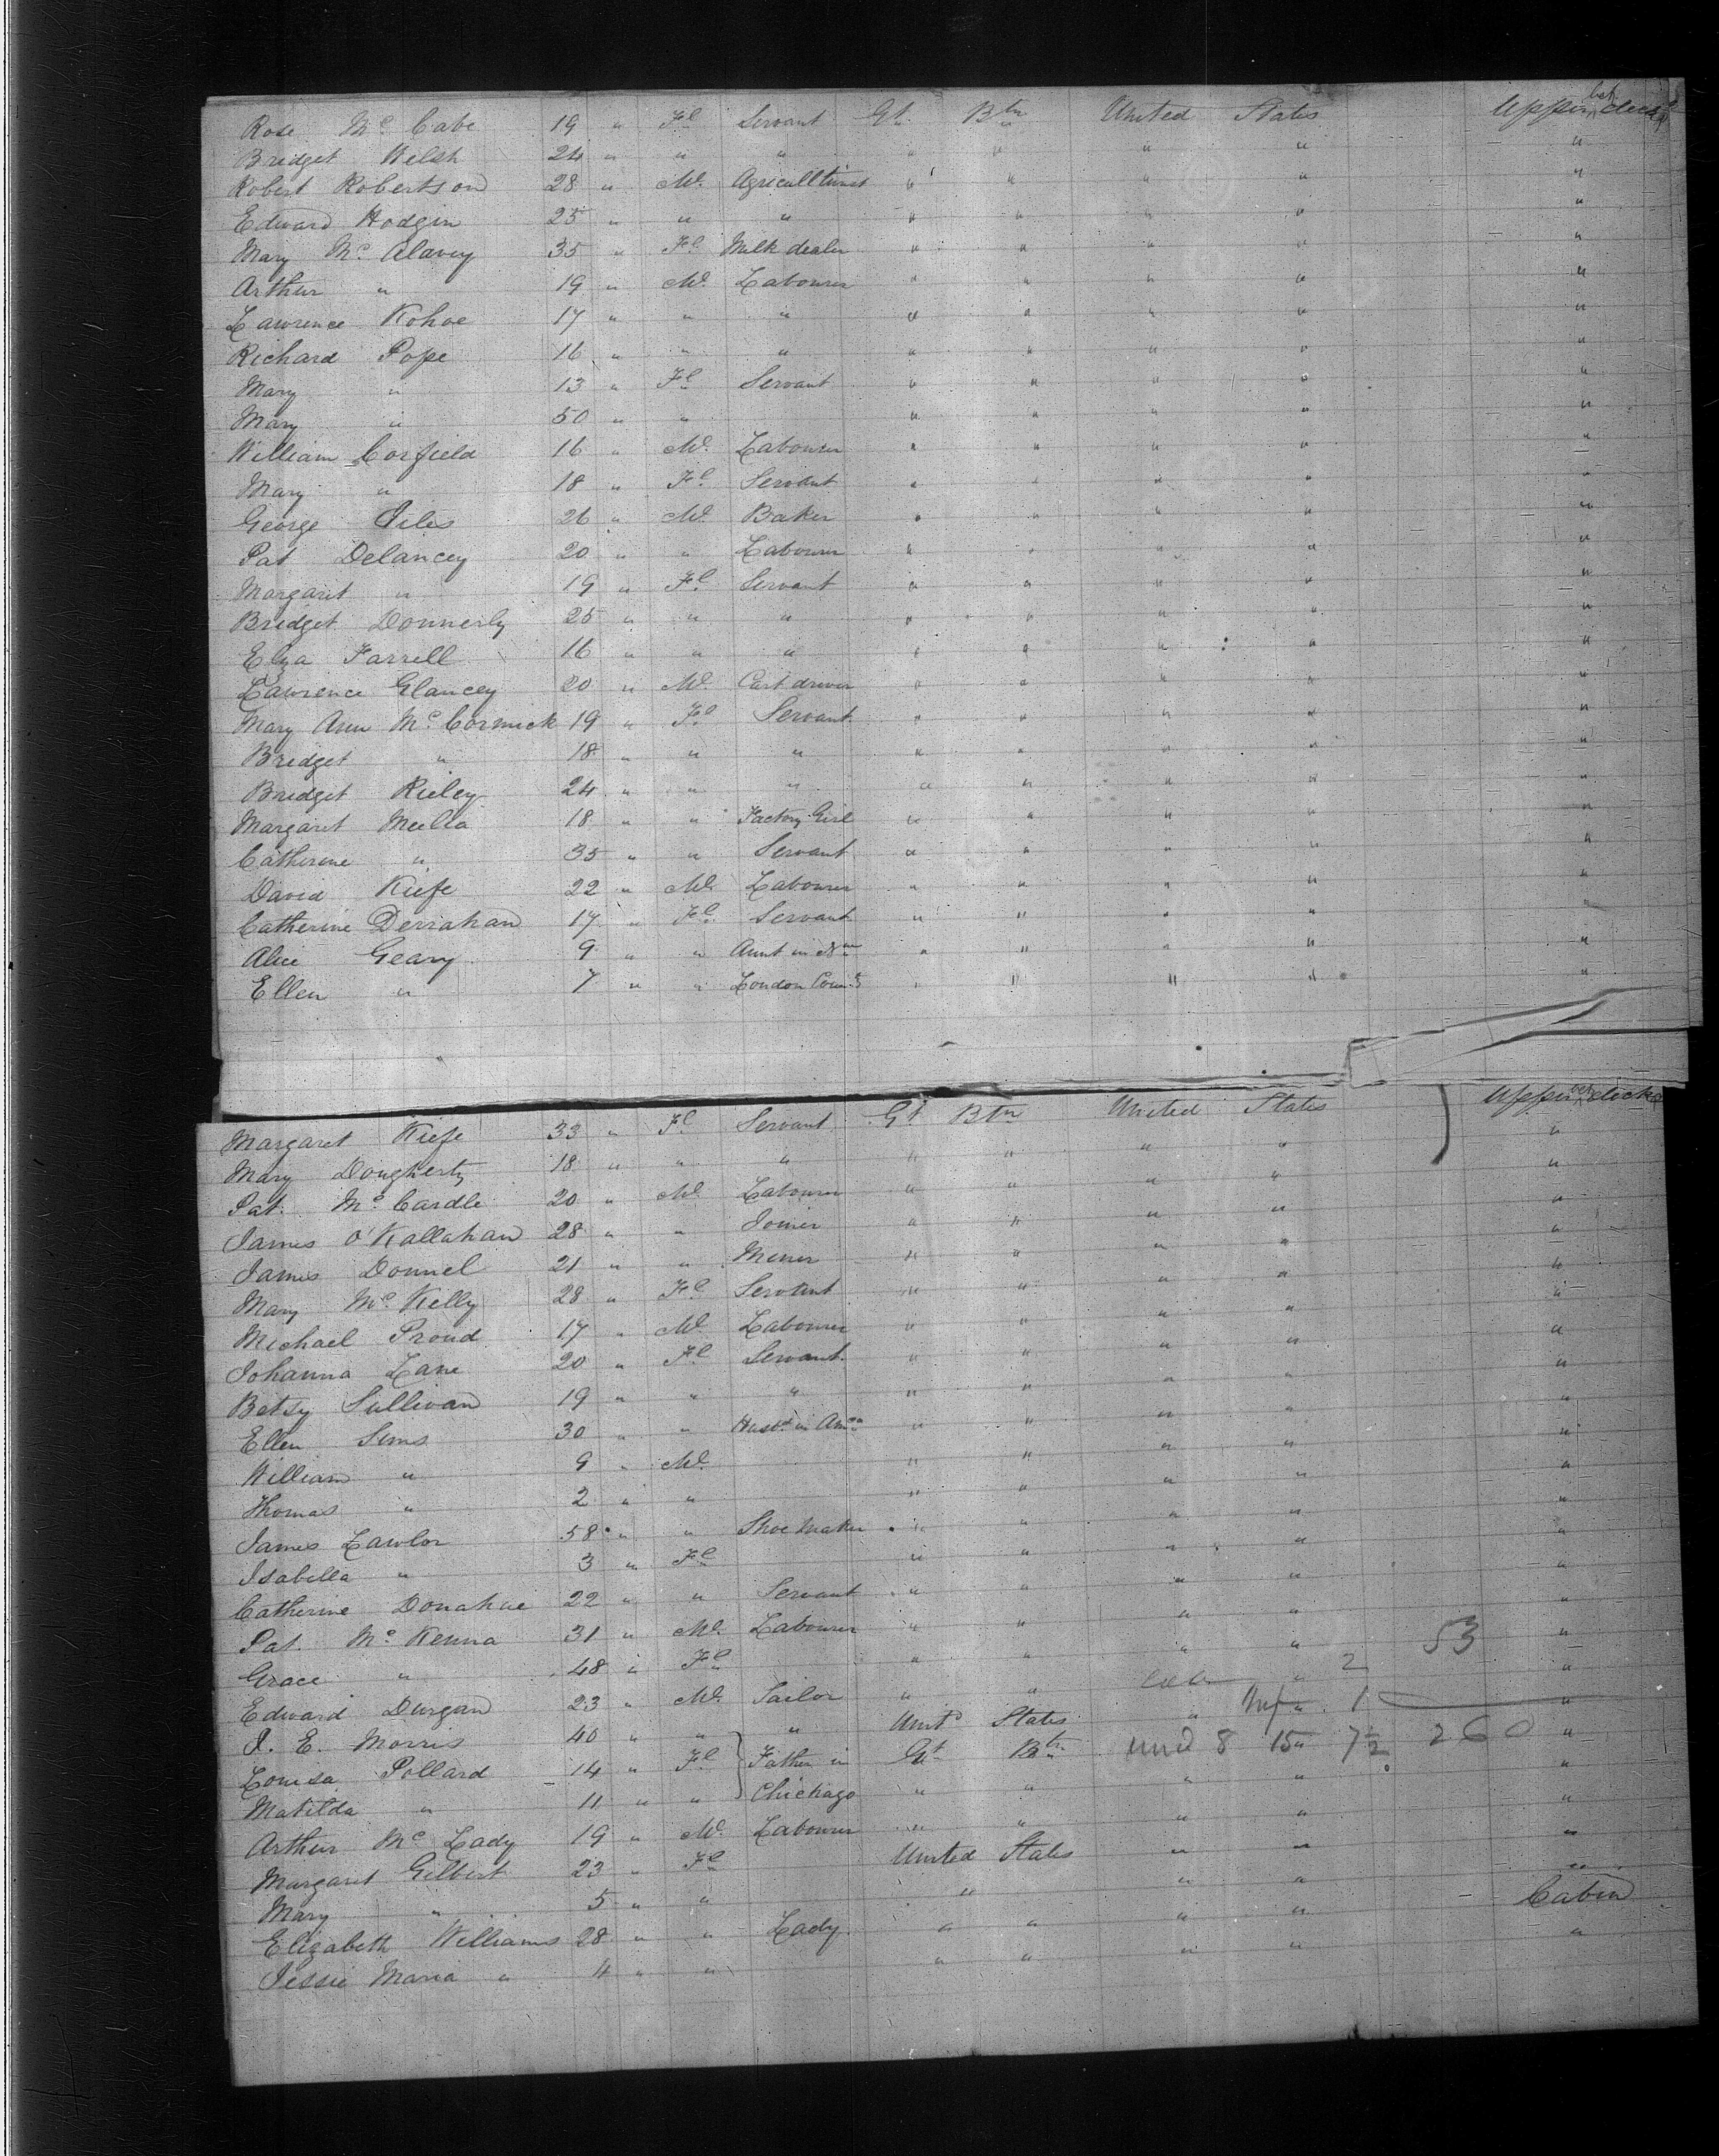 Rose Mc Cabe 19 " Fl Servant Gt Btn United States Upper bet. decks
Bridget Welsh 24 " " " " " " " "
Robert Robertson 28 " Ml. Agricultturist " " " " "
Edward Hodgin 25 " " " " " " " "
Mary Mc Alavey 35 " Fl Milk dealer " " " " "
Arthur " 19 " Ml. Labourer " " " " "
Lawrence Kohoe 17 " " " " " " " "
Richard Pope 16 " " " " " " " "
Mary " 13 " Fl Servant " " " " "
Mary " 50 " " " " " " "
William Corfield 16 " Ml. Labourer " " " " "
Mary " 18 " Fl Servant " " " " "
George Giles 26 " Ml. Baker " " " " "
Pat Delancey 20 " " Labourer " " " " "
Margaret " 19 " Fl Servant " " " " "
Bridget Donnerly 25 " " " " " " " "
Elza Farrell 16 " " " " " " " "
Lawrence Glancey 20 " Ml. Cart driver " " " " "
Mary Ann Mc Cormick 19 " Fl Servant " " " " "
Bridget " 18 " " " " " " " "
Bridget Rieley 24 " " " " " " " "
Margaret Meella 18 " " Factory Girl " " " " "
Catherine " 35 " " Servant " " " " "
David Kiefe 22 " Ml. Labourer " " " " "
Catherine Derrahan 17 " Fl Servant " " " " "
Alice Geary 9 " " Aunt in " " " " "
Ellen " 7 " " London " " " " "
Margaret Kiefe 33 " Fl Servant Gt Btn United States Upper bet. decks
Mary Dougherty 18 " " " " " " " "
Pat. Mc Cardle 20 " Ml. Labourer " " " " "
James O'Kallahan 28 " " Joiner " " " " "
James Donnel 21 " " Miner " " " " "
Mary Mc Kelly 28 " Fl Servant " " " " "
Michael Proud 17 " Ml. Labourer " " " " "
Johanna Lane 20 " Fl Servant " " " " "
Betsy Sullivan 19 " " " " " " " "
Ellen Sims 30 " " Husbd in Amca " " " " "
William " 9 " Ml. " " " " "
Thomas " 2 " " " " " " "
James Lawlor 58 " " Shoe maker " " " " "
Isabella " 3 " Fl " " " " "
Catherine Donahue 22 " " Servant " " " " "
Pat. Mc Kenna 31 " Ml. Labourer " " " " 53 "
Grace " 48 " Fl " " " " 2 "
Edward Durgan 23 " Ml. Sailor " " " Inf " 1 "
J. E. Morris 40 " " " Unitd States und 8 15 7½ 260 "
Louisa Pollard 14 " Fl Father in Gt Btn " " "
Matilda " 11 " " Chickago " " " " "
Arthur Mc Lady 19 " Ml. Labourer " " " " "
Margaret Gilbert 23 " Fl United States " " "
Mary " 5 " " " " " "
Elizabeth Williams 28 " " Lady " " " " Cabin
Jessie Maria " 4 " " " " " " "